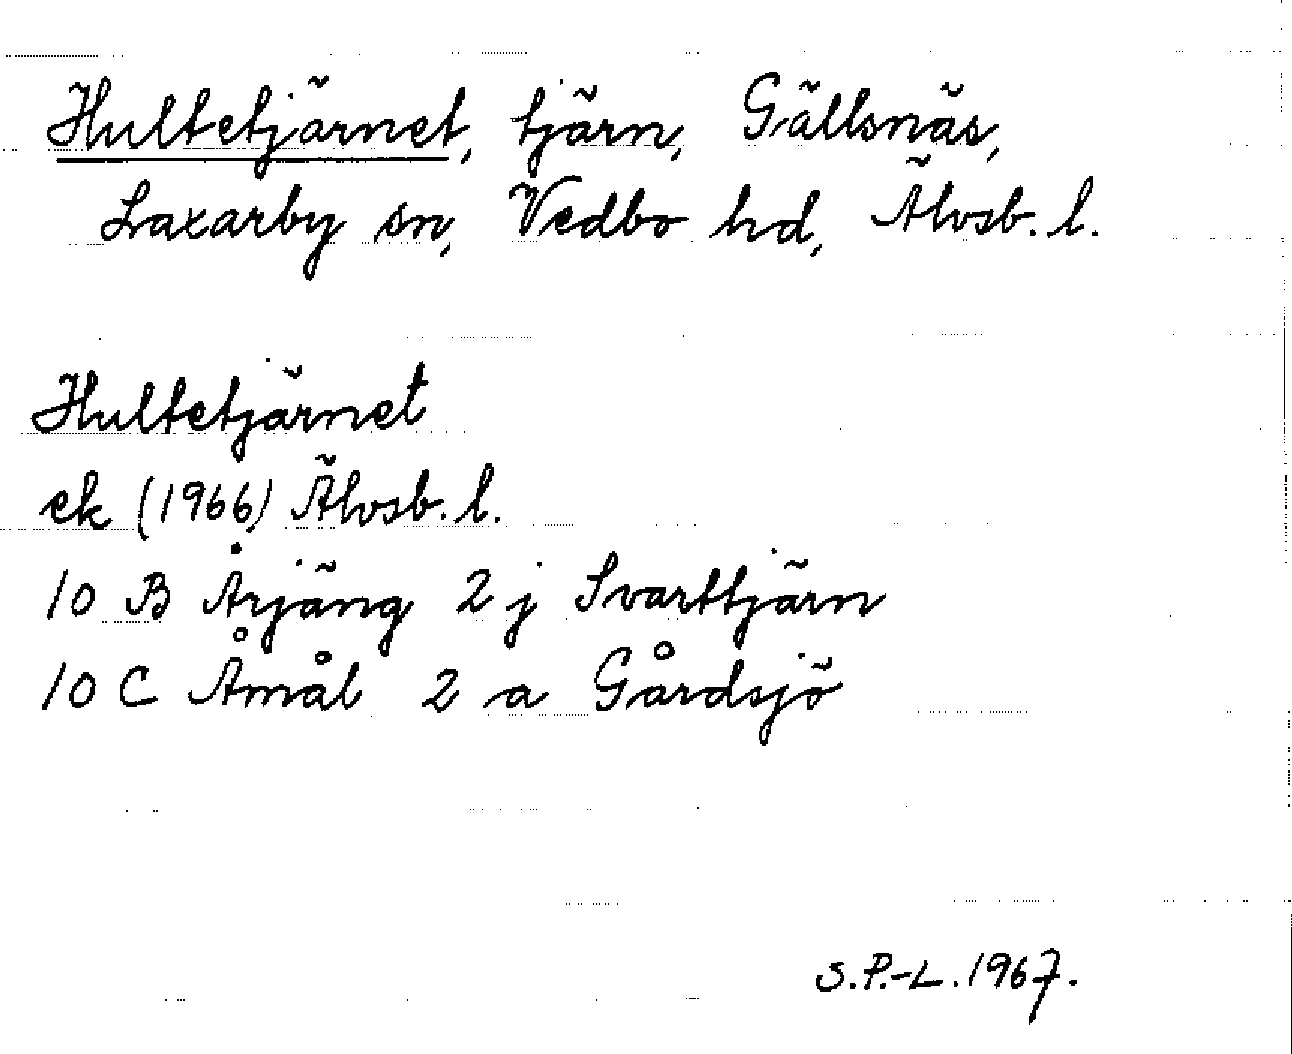 Hultetjärnet, tjärn, Gällsnäs,
Laxarby sn, Vedbo hd, Älvsb. l.
Hultetjärnet
ek (1966) Älvsb. l.
10 B Årjäng 2 j Svarttjärn
10 C Åmål 2 a Gårdsjö
S.P.-L. 1967.